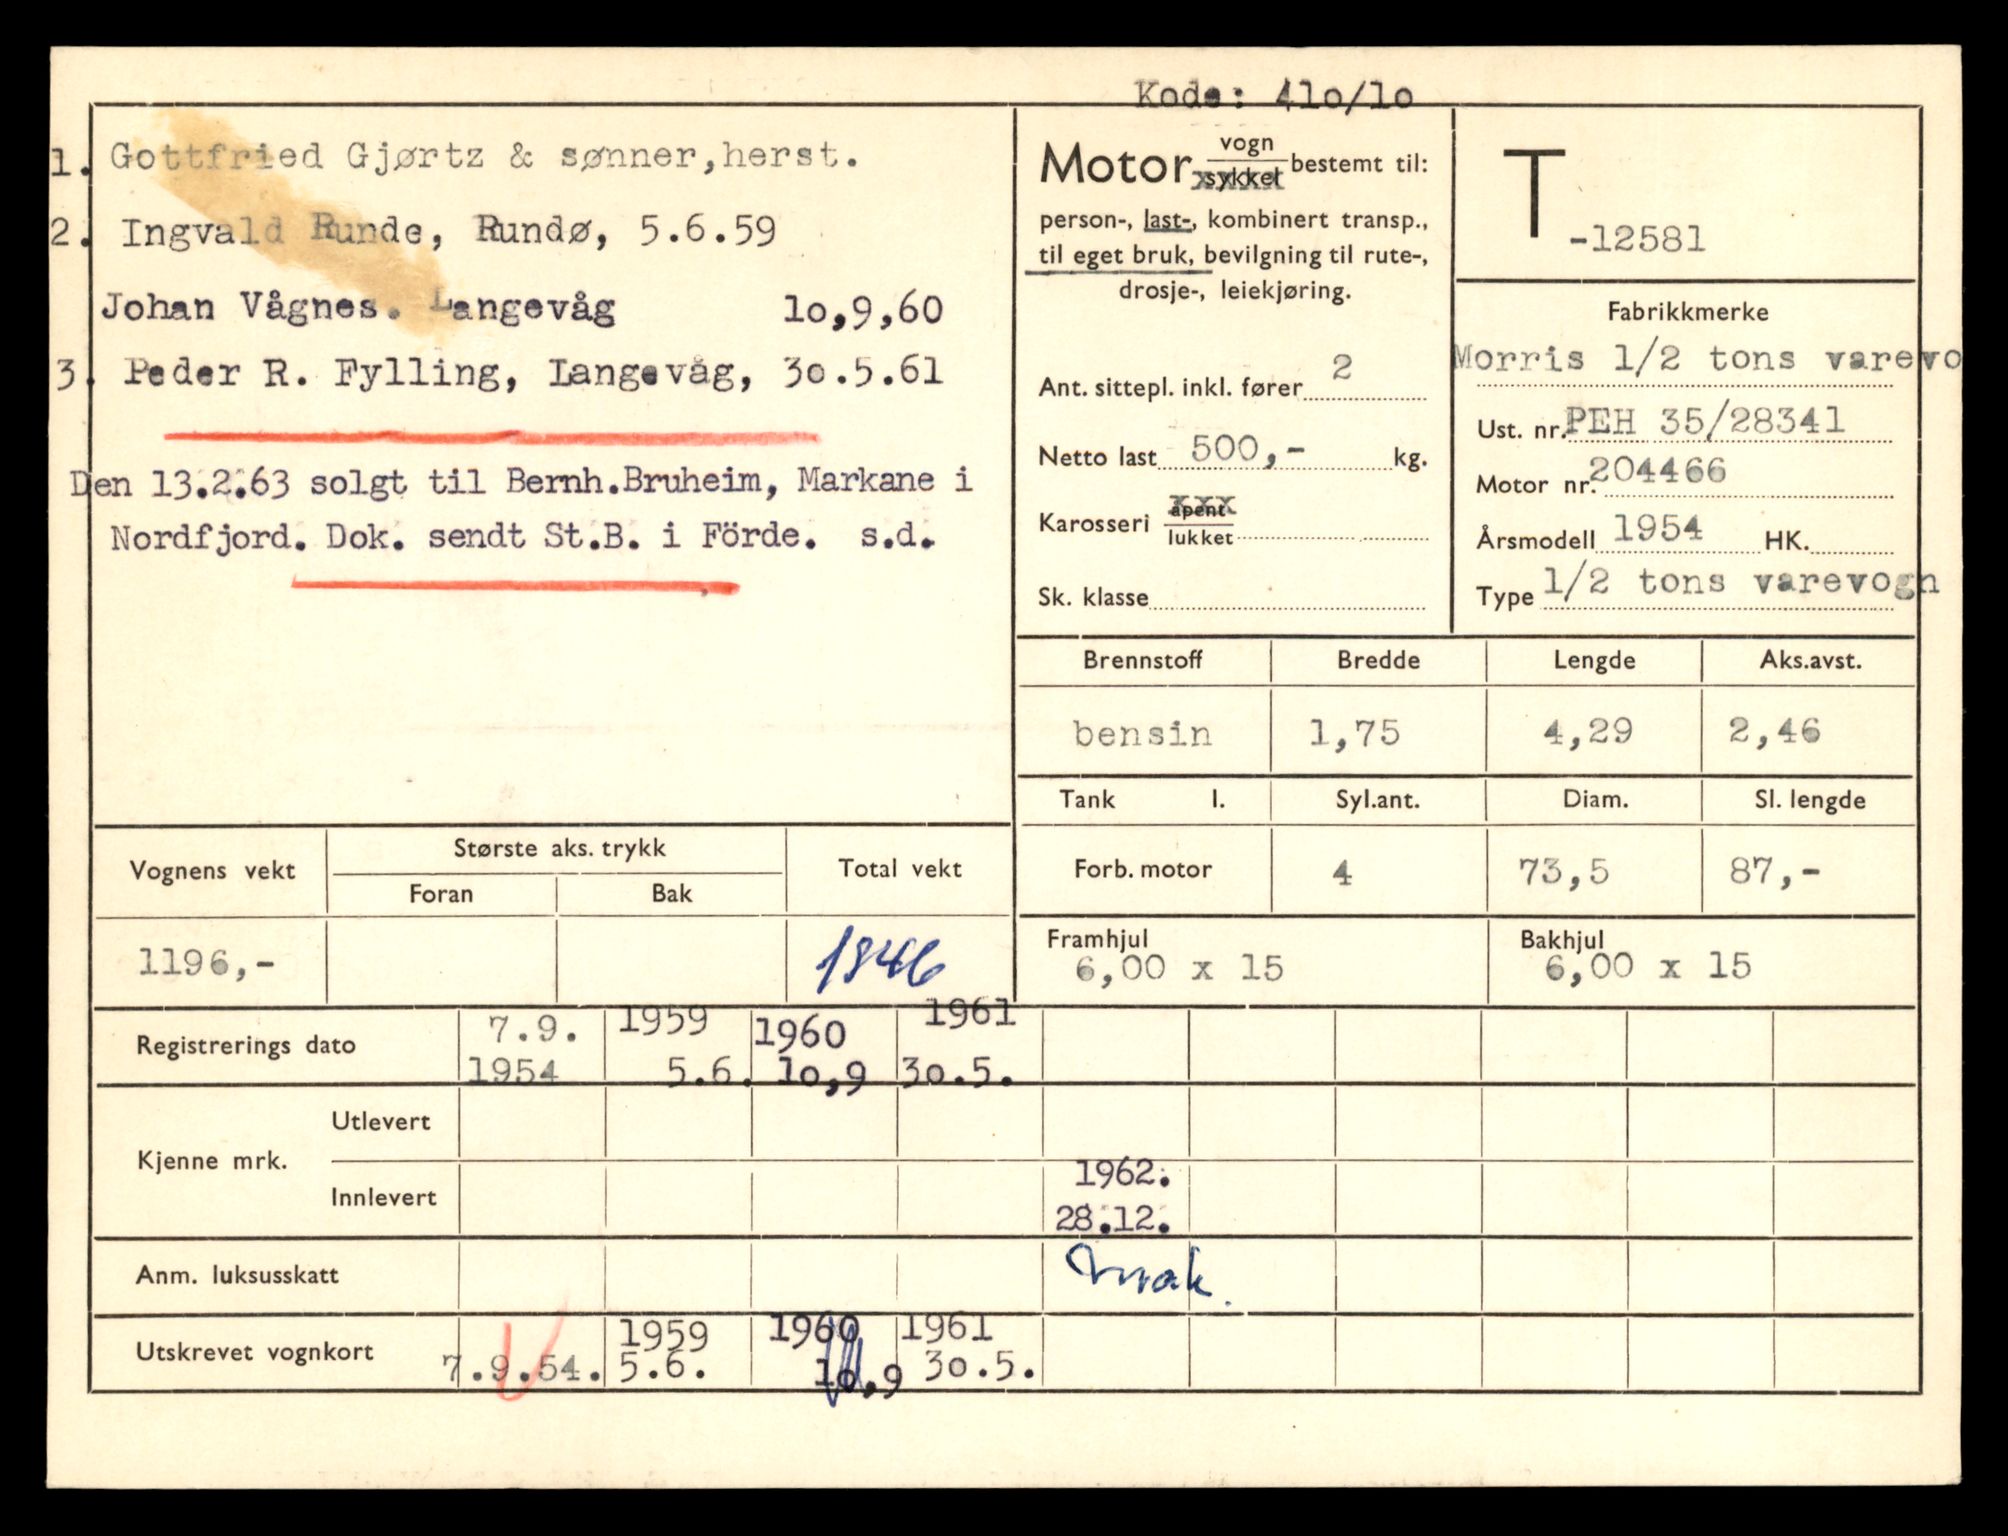 Kode: 41o/1o
1. Gottfried Gjørtz & sønner,herst.
2. Ingvald Runde, Rundø, 5.6.59
Johan Vågnes. Langevåg 1o,9,60
3. Peder R. Fylling, Langevåg, 3o.5.61
Den 13.2.63 solgt til Bernh.Bruheim, Markane i
Nordfjord. Dok. sendt St.B. i Förde. s.d.
Motor vogn/sykkel bestemt til:
person-, last-, kombinert transp.,
til eget bruk, bevilgning til rute-,
drosje-, leiekjøring.
Ant. sittepl. inkl. fører 2
Netto last 500,- kg.
Karosseri åpent/lukket
Sk. klasse
T -12581
Fabrikkmerke
Morris 1/2 tons varevo
Ust. nr. PEH 35/28341
Motor nr. 204466
Årsmodell 1954 HK.
Type 1/2 tons varevogn
Brennstoff Bredde Lengde Aks.avst.
bensin 1,75 4,29 2,46
Tank l. Syl.ant. Diam. Sl. lengde
Forb. motor 4 73,5 87,-
Framhjul Bakhjul
6,00 x 15 6,00 x 15
Vognens vekt Største aks. trykk Total vekt
Foran Bak
1196,- 1846
Registrerings dato 7.9. 1959 1960 1961
1954 5.6. 1o,9 3o.5.
Kjenne mrk.
Utlevert
Innlevert 1962.
28.12.
Anm. luksusskatt
Utskrevet vognkort 1959 1960 1961
7.9.54. 5.6. 1o,9 3o.5.